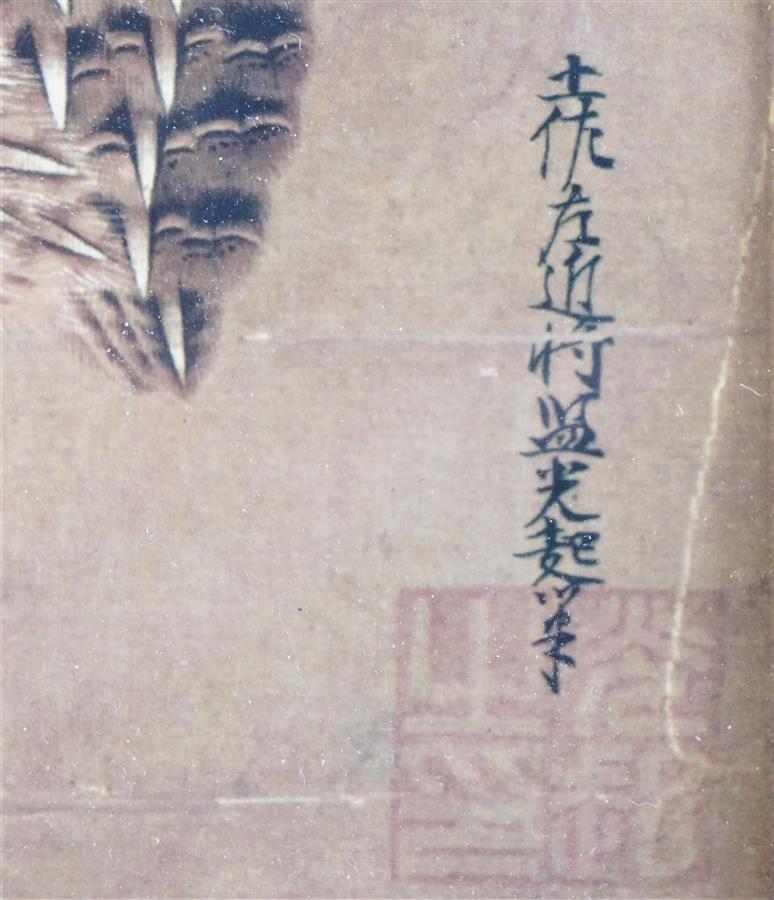 土佐左近将监光起筆